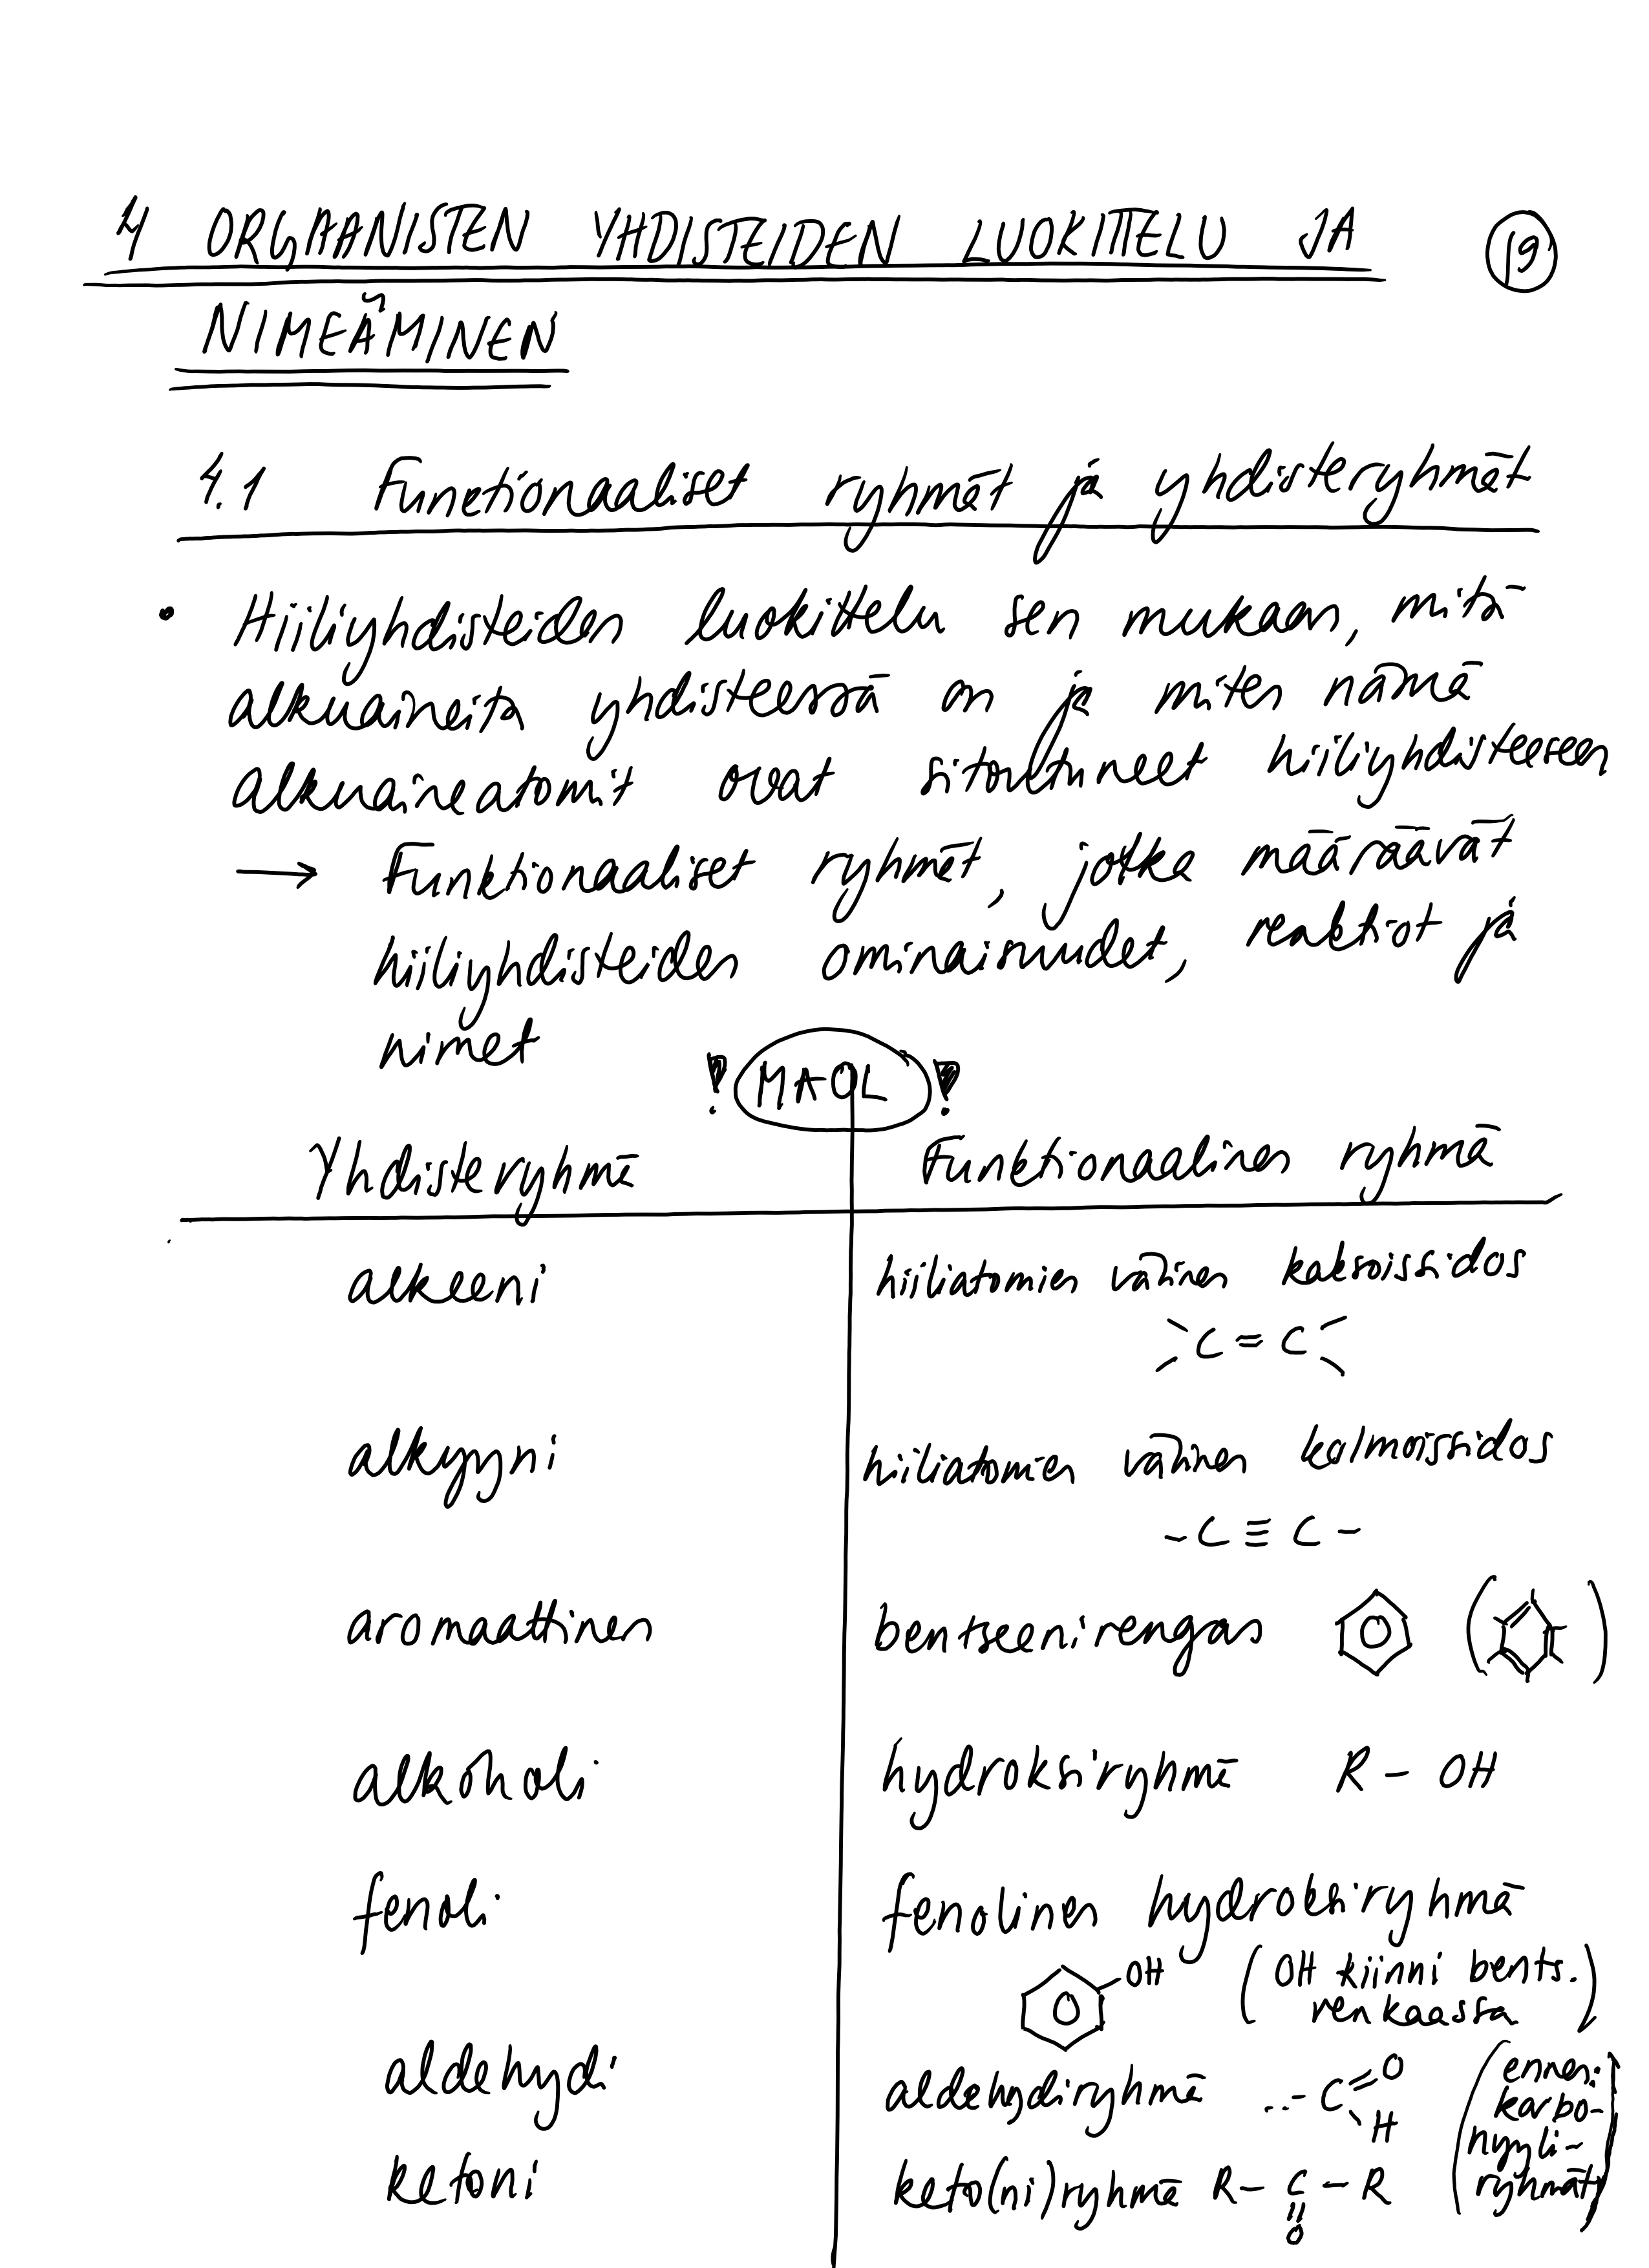 4 ORGAANISTEN YHDISTEIDEN LUOKITTELU JA
19
NIMEÄMINEN
4.1 Functionaaliset ryhmät ja yhdisteryhmät
• Hiiliyhdisteiden luokittelu sen mukaan, mitä
alkuaineita yhdisteessä on ja miten nämä
alkuaineatomit ovat sitoutuneet hiiliyhdisteeseen
→ Funktionaaliset ryhmät, jotka määräävät
hiiliyhdisteiden ominaisuudet, reaktiot ja
nimet
! MAOL !
Yhdisteryhmä Funktionaalinen ryhmä
alkeeni hiiliatomien välinen kaksoissidos
C = C
alkyyni hiiliatomien välinen kolmoissidos
-C ≡ C-
aromaattinen bentseenirengas ( )
alkoholi hydroksiryhmä R - OH
fenoli fenolinen hydroksiryhmä
OH (OH kiinni bents.
renkaassa)
aldehydi aldehydiryhmä ..-C=O
H
ketoni keto(ni)ryhmä R-C-R
O
(ennen:
karbo-
nyyli-
ryhmät)